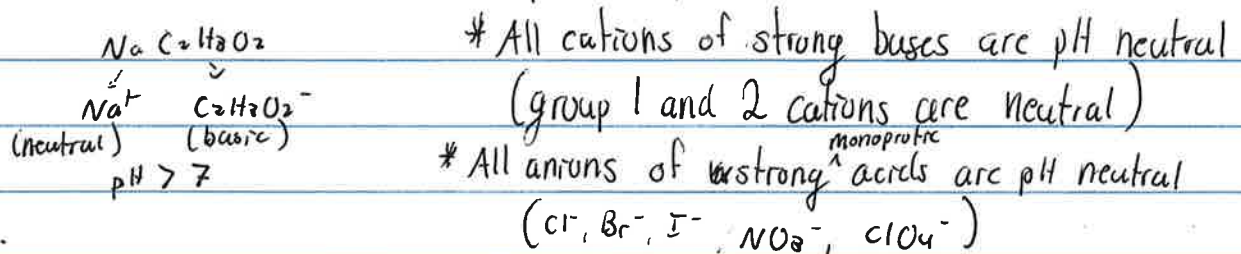 Na C₂H₃O₂
Na⁺ C₂H₃O₂⁻
(neutral) (basic)
pH > 7
* All cations of strong bases are pH neutral
(group 1 and 2 cations are neutral)
* All anions of strong ^monoprotic acids are pH neutral
(Cl⁻, Br⁻, I⁻, NO₃⁻, ClO₄⁻)